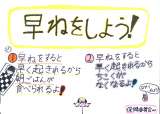 早ねをしよう！
①早ねをすると
早く起きれるから
朝ごはんが
食べられるよ！
②早ねをすると
早く起きれるから
ちこくが
なくなるよ！